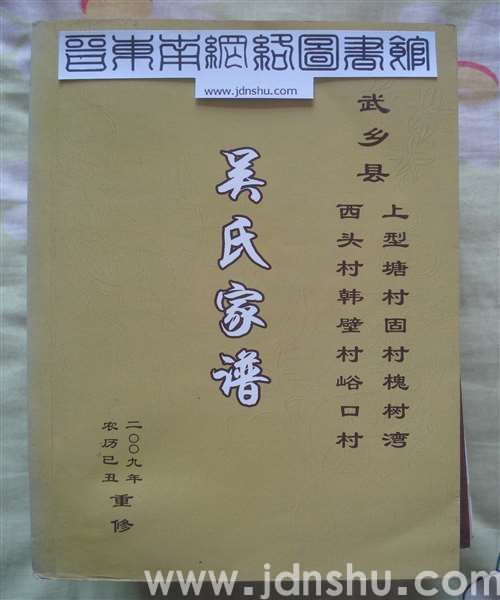 晋東南網絡圖書館
www.jdnshu.com
武乡县
上型塘村固村槐树湾
西头村韩壁村峪口村
吴氏家谱
二〇〇九年
农历己丑
重修
www.jdnshu.com